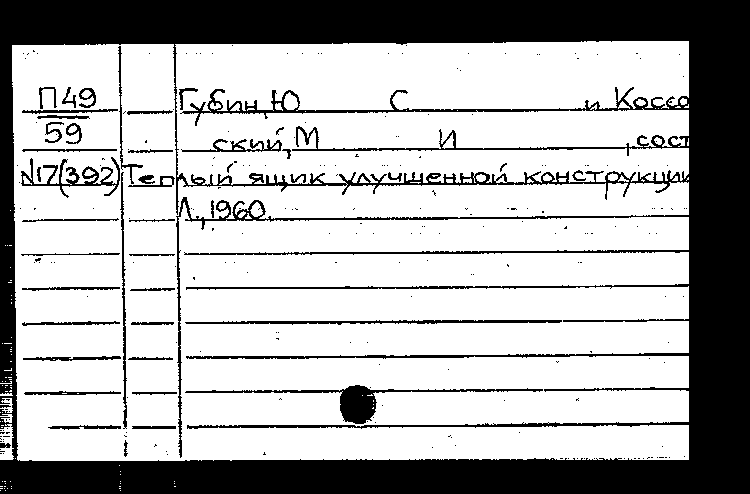 П49 Губин, Ю С и Коссо
59 ский, М И , сост
N17(392) Теплый ящик улучшенной конструкции
Л., 1960.